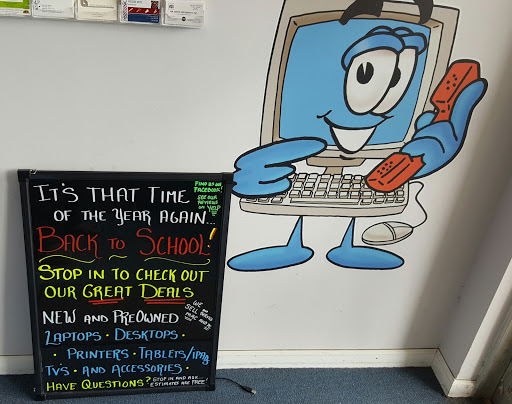 It's That Time
of the Year Again...
Find us on
Facebook!
See our
reviews
on Yelp
Back to School!
Stop in to check out
our Great Deals
New and PreOwned
We
Sell
Laptops · Desktops ·
· Printers · Tablets/iPads
TV's · and Accessories ·
Have Questions? Stop in and ask...
Estimates are Free!